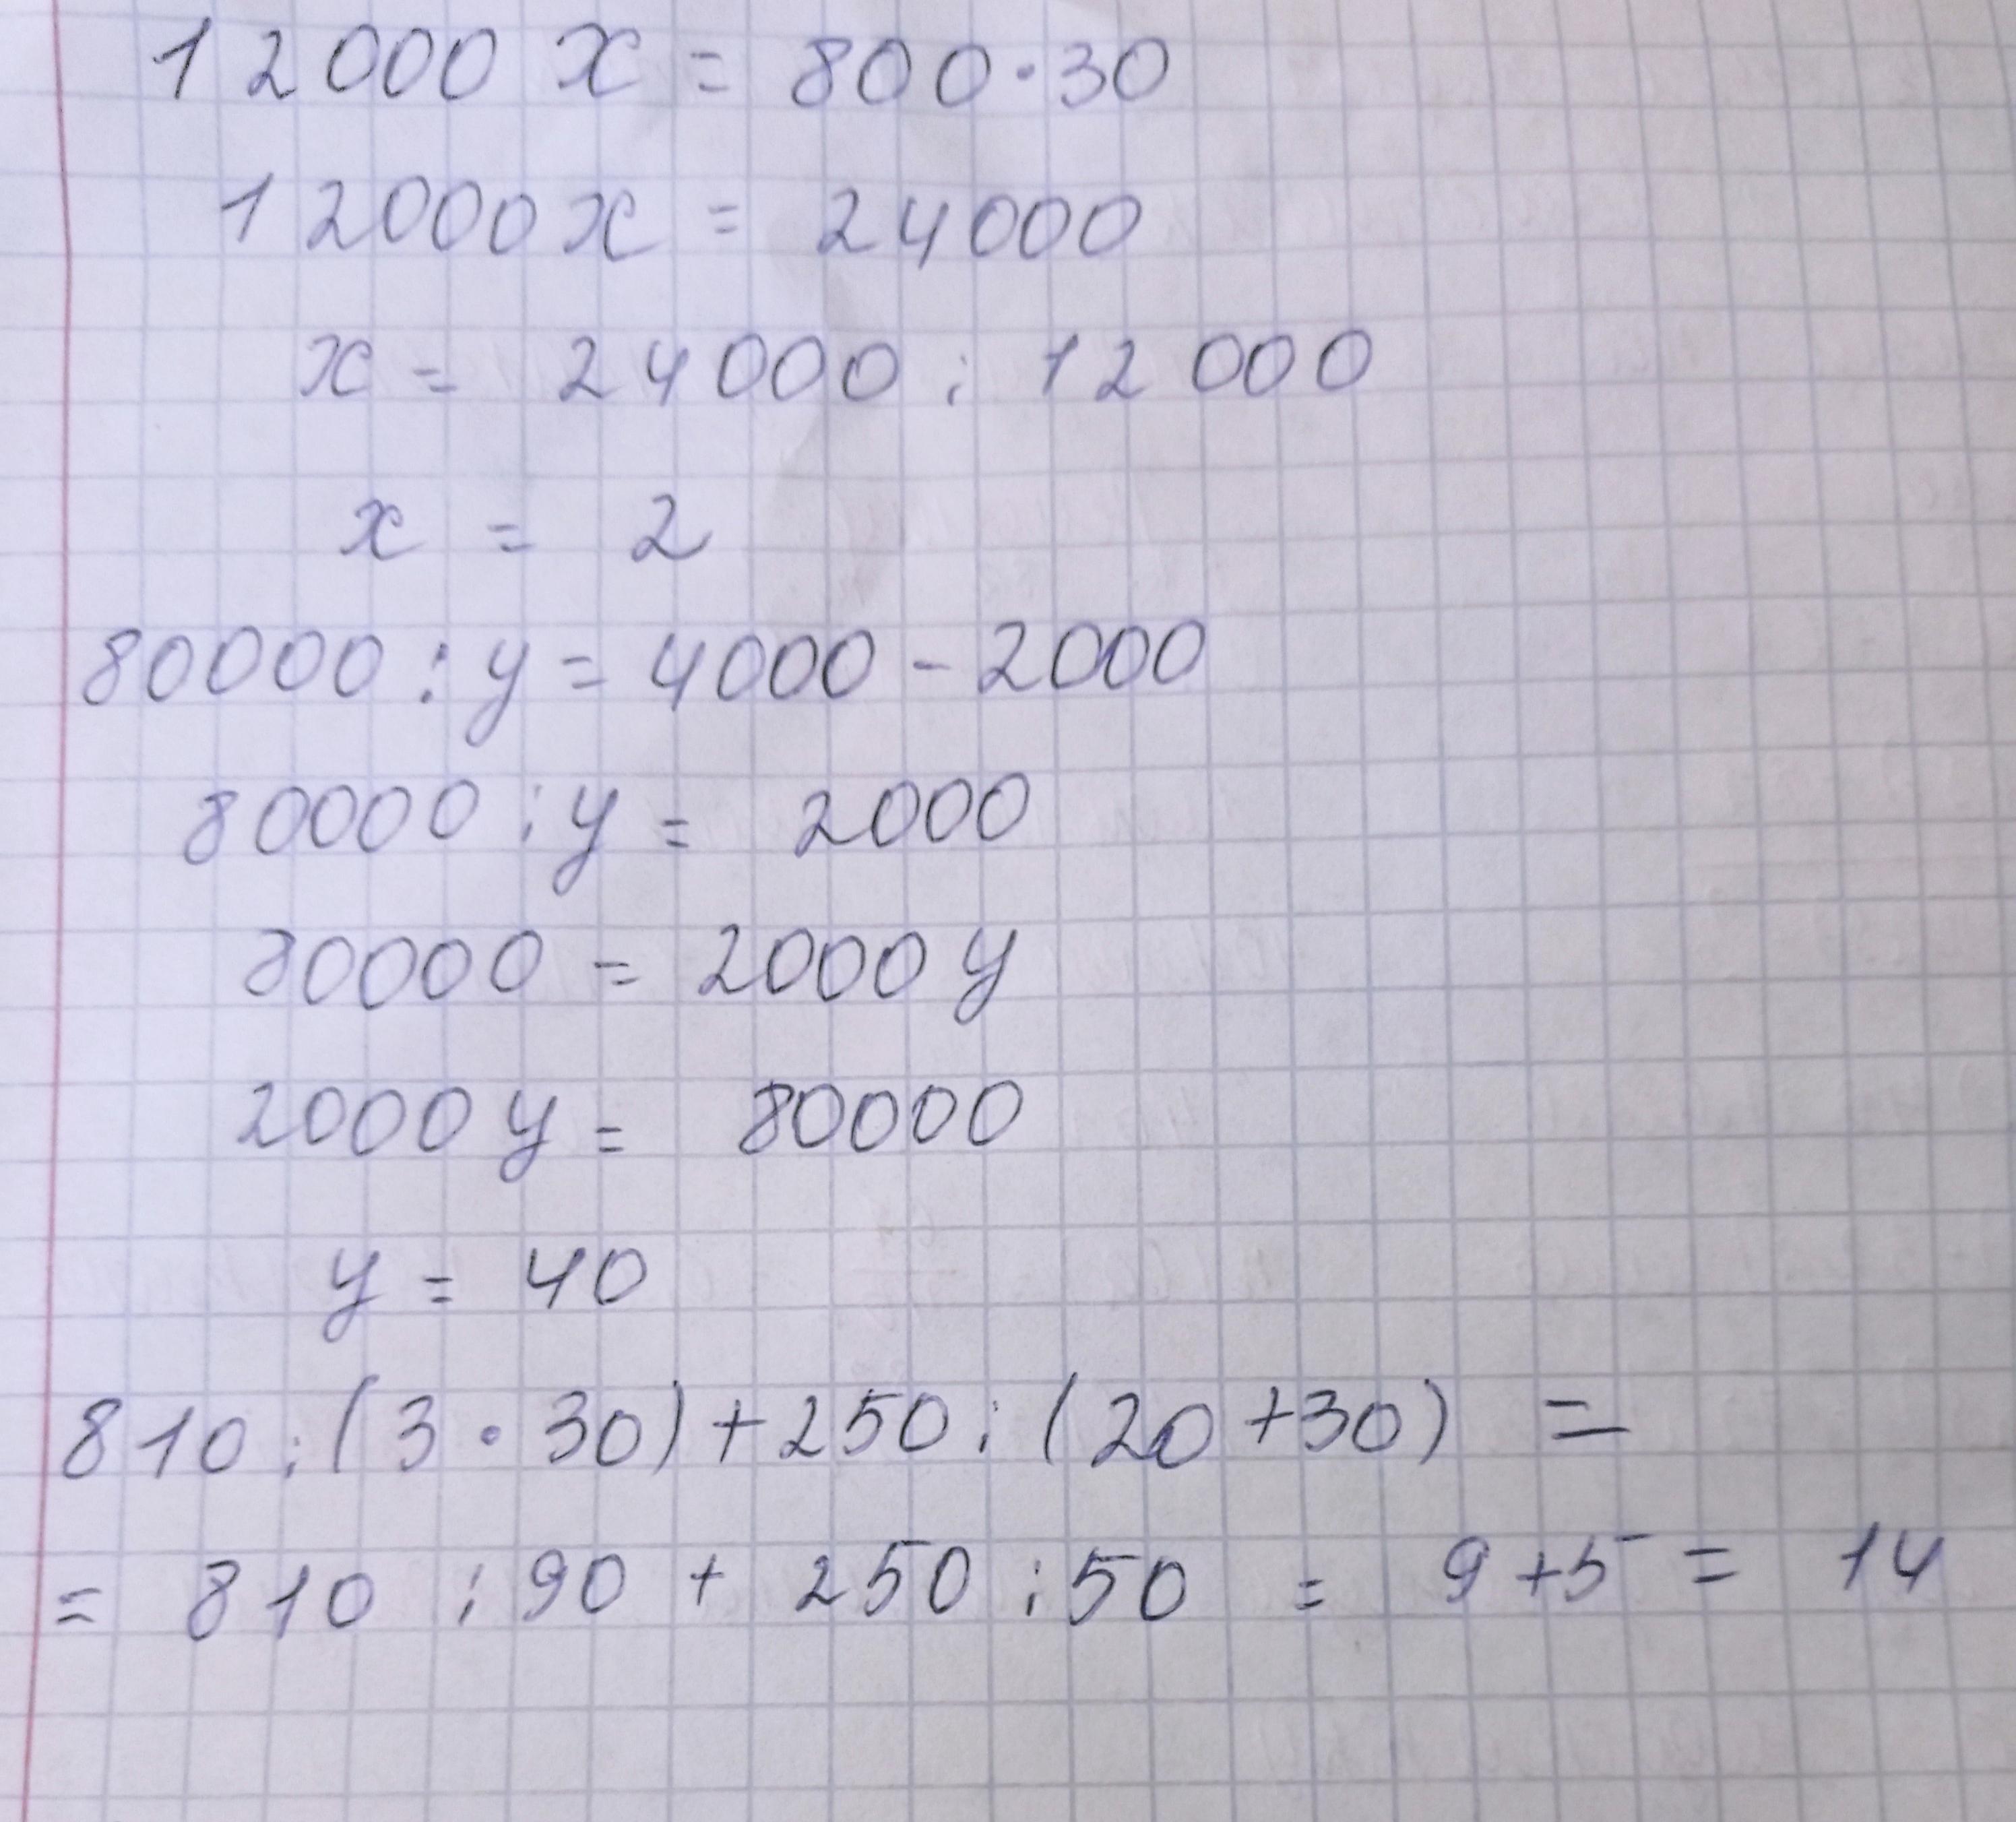 12000 x = 800·30
12000 x = 24000
x = 24000 : 12000
x = 2
80000 : y = 4000 - 2000
80000 : y = 2000
80000 = 2000 y
2000 y = 80000
y = 40
810 : (3 · 30) + 250 : (20 + 30) =
= 810 : 90 + 250 : 50 = 9 + 5 = 14